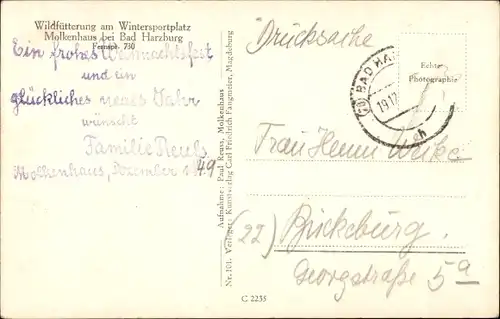 Wildfütterung am Wintersportplatz
Molkenhaus bei Bad Harzburg
Fernspr. 730
Ein frohes Weihnachtsfest
und ein
glückliches neues Jahr
wünscht
Familie Reuß
Molkenhaus, Dezember 1949
Aufnahme: Paul Reuss, Molkenhaus
Nr. 101. Verleger: Kunstverlag Carl Friedrich Fangmeier, Magdeburg
Drucksache
BAD HA
19.12
Echte
Photographie
Frau Henny
(22) Bückeburg.
Georgstraße 5a
C 2235